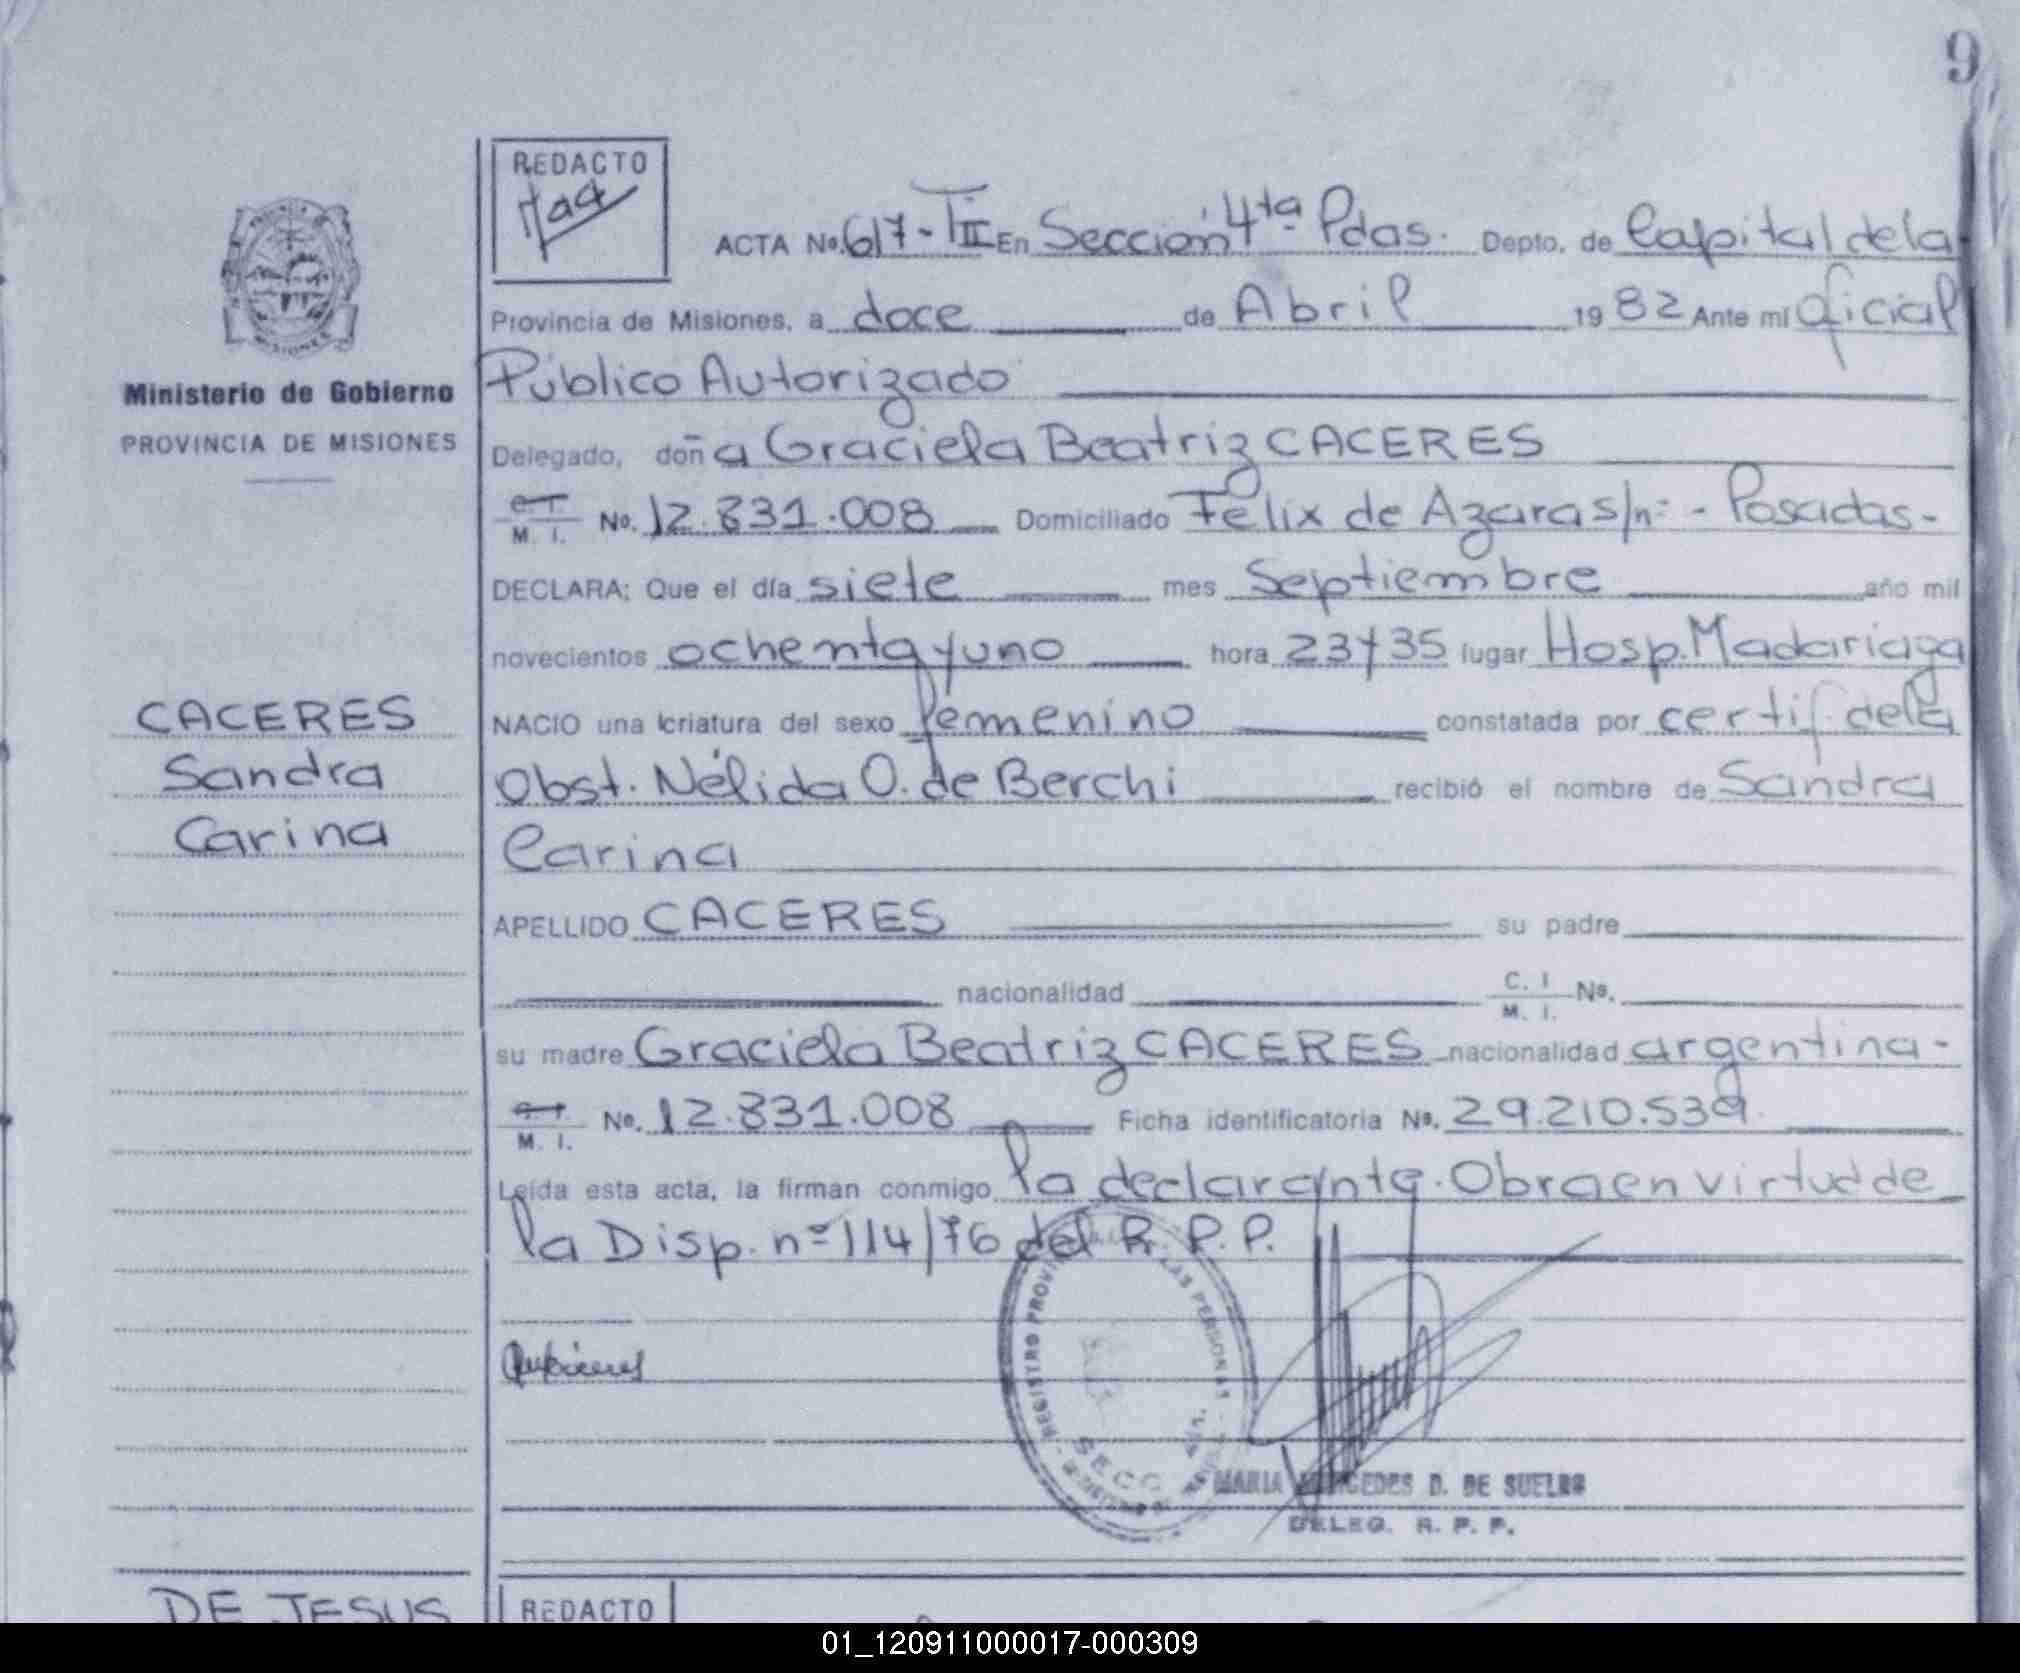 9
REDACTO
ACTA No. 617 - T II En Sección 4ta Pdas. Depto. de Capital de la
Provincia de Misiones, a doce de Abril 1982 Ante mí Oficial
Público Autorizado
Delegado, doña Graciela Beatriz CACERES
C. I. M. I. No. 12.831.008 Domiciliado Félix de Azara s/nº - Posadas-
DECLARA: Que el día siete mes Septiembre año mil
novecientos ochenta y uno hora 23 y 35 lugar Hosp. Madariaga
NACIO una criatura del sexo femenino constatada por certif. de la
Obst. Nélida O. de Berchi recibió el nombre de Sandra
Carina
APELLIDO CACERES su padre
nacionalidad C. I M. I. No.
su madre Graciela Beatriz CACERES nacionalidad argentina-
M. I. No. 12.831.008 Ficha identificatoria No. 29.210.539
Leída esta acta, la firman conmigo la declarante. Obra en virtud de
la Disp. nº 114/76 del R. P. P.
Ministerio de Gobierno
PROVINCIA DE MISIONES
CACERES
Sandra
Carina
MARIA MERCEDES D. DE SUELDO
DELEG. R. P. P.
DE JESUS
REDACTO
01_120911000017-000309